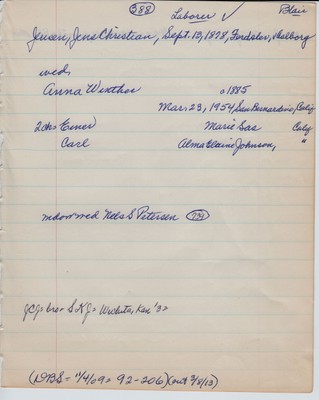 388 Laborer ✓ Blair
Jensen, Jens Christian, Sept. 13, 1878, Fordslev, Aalborg
wed,
Anna Winther o 1885
Mar. 23, 1954, San Bernardino, Calif
2chs Einer Marie Sas Calif
Carl Alma Elaine Johnson, "
wed Nels S Petersen 779
JCJs bro S K Js Wichita, Kan '30
(DBS = 11/4/09 = 92-206) (out 3/8/13)